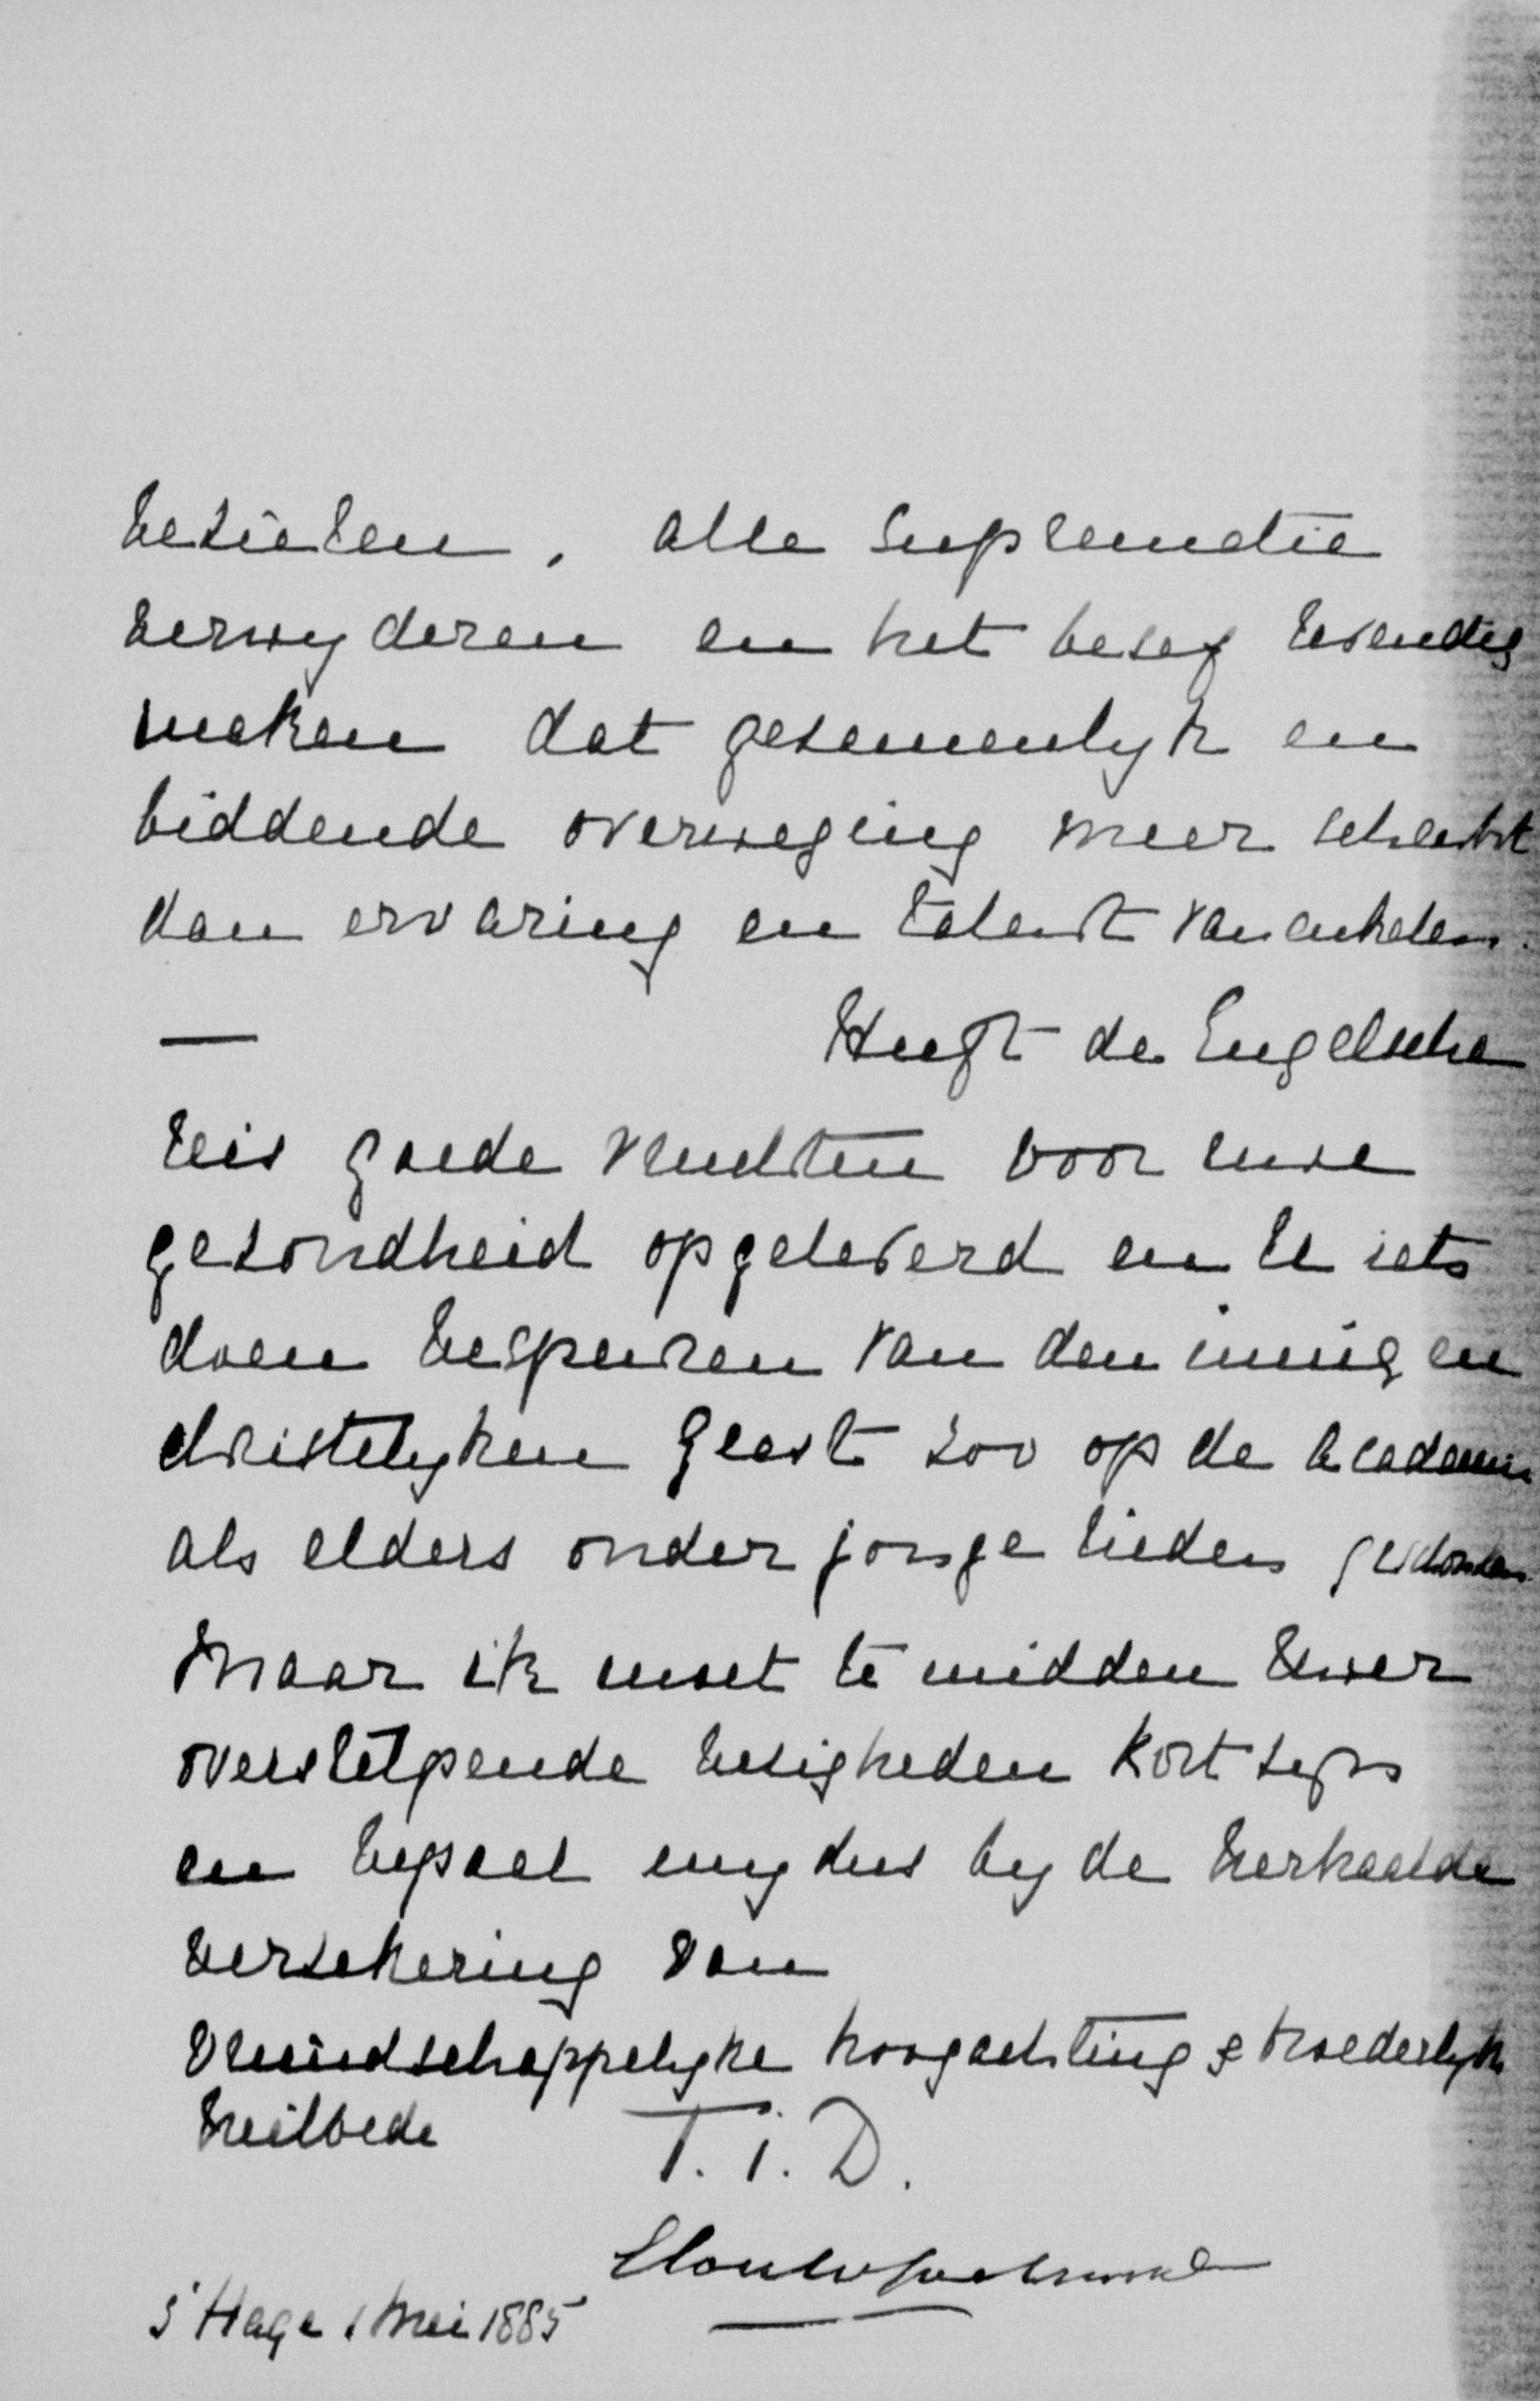 bezielen, alle suprematie
verwyderen en het besef levendig
maken dat gezamenlyk en
biddende overweging meer
dan ervaring en talent van enkelen.
— Heeft de Engelsche
reis goede vruchten voor uwe
gezondheid opgeleverd en U iets
doen bespeuren van den innig en
christelyken geest zoo op de academie
als elders onder jonge lieden
Maar ik moet te midden Uwer
overstelpende bezigheden kort zyn
en bepaal my dus by de herhaalde
verzekering van
vriendschappelyke hoogachting & broederlyke
heilbede T.i.D.
Elout v Soeterwoude
s' Hage 1 Mei 1885